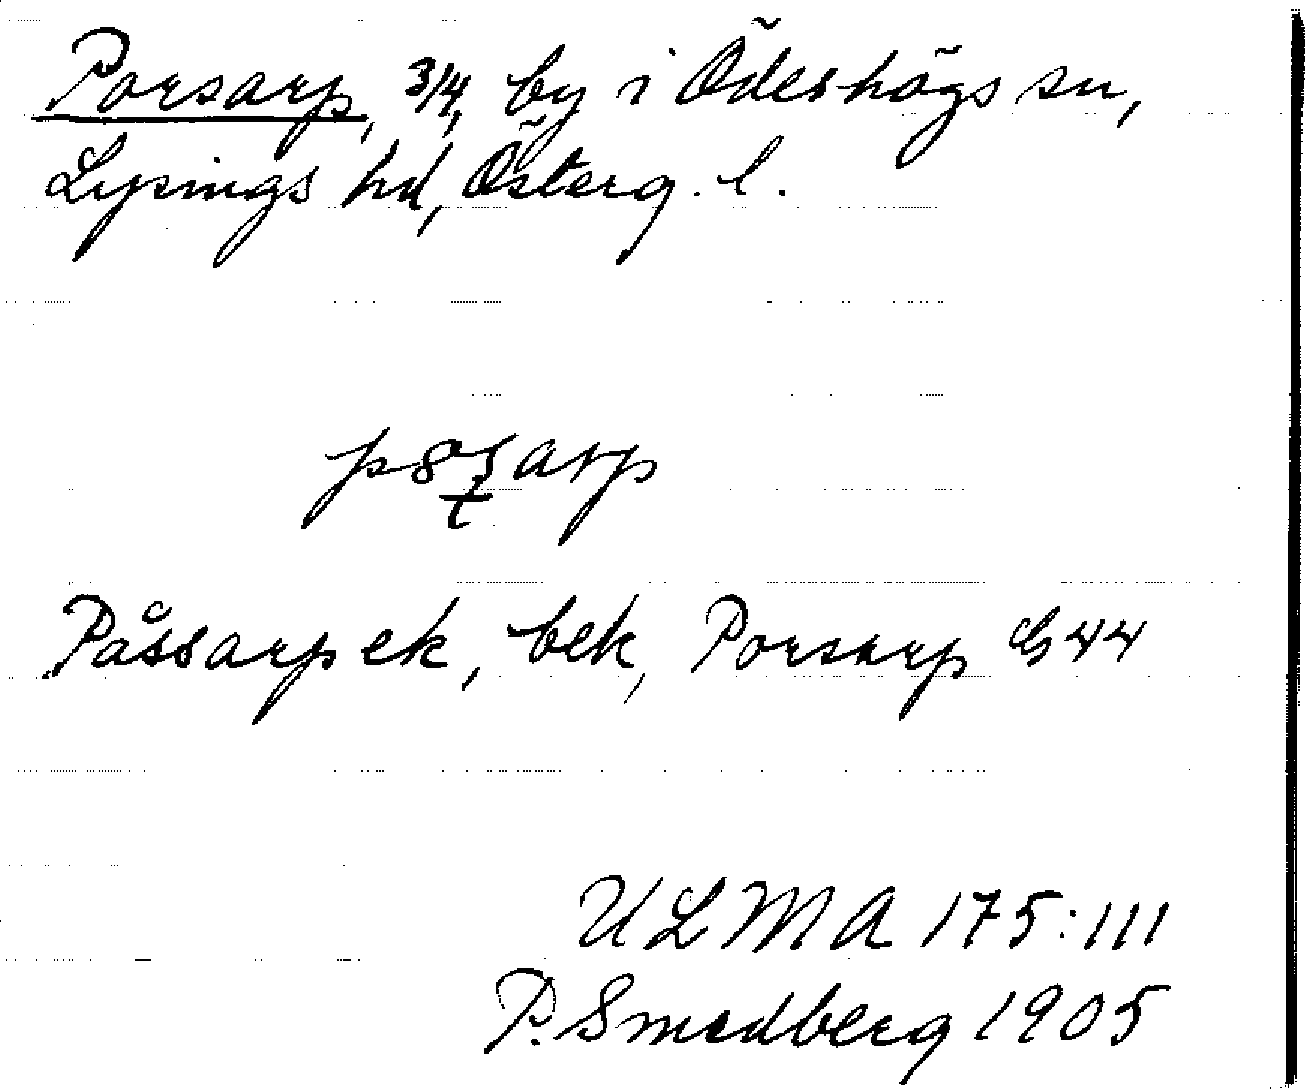 Porsarp, 3/4, by i Ödeshögs sn,
Lysings hd, Österg. l.
Påssarp ek, bek, Porsarp G 44
ULMA 175:111
P. Smedberg 1905